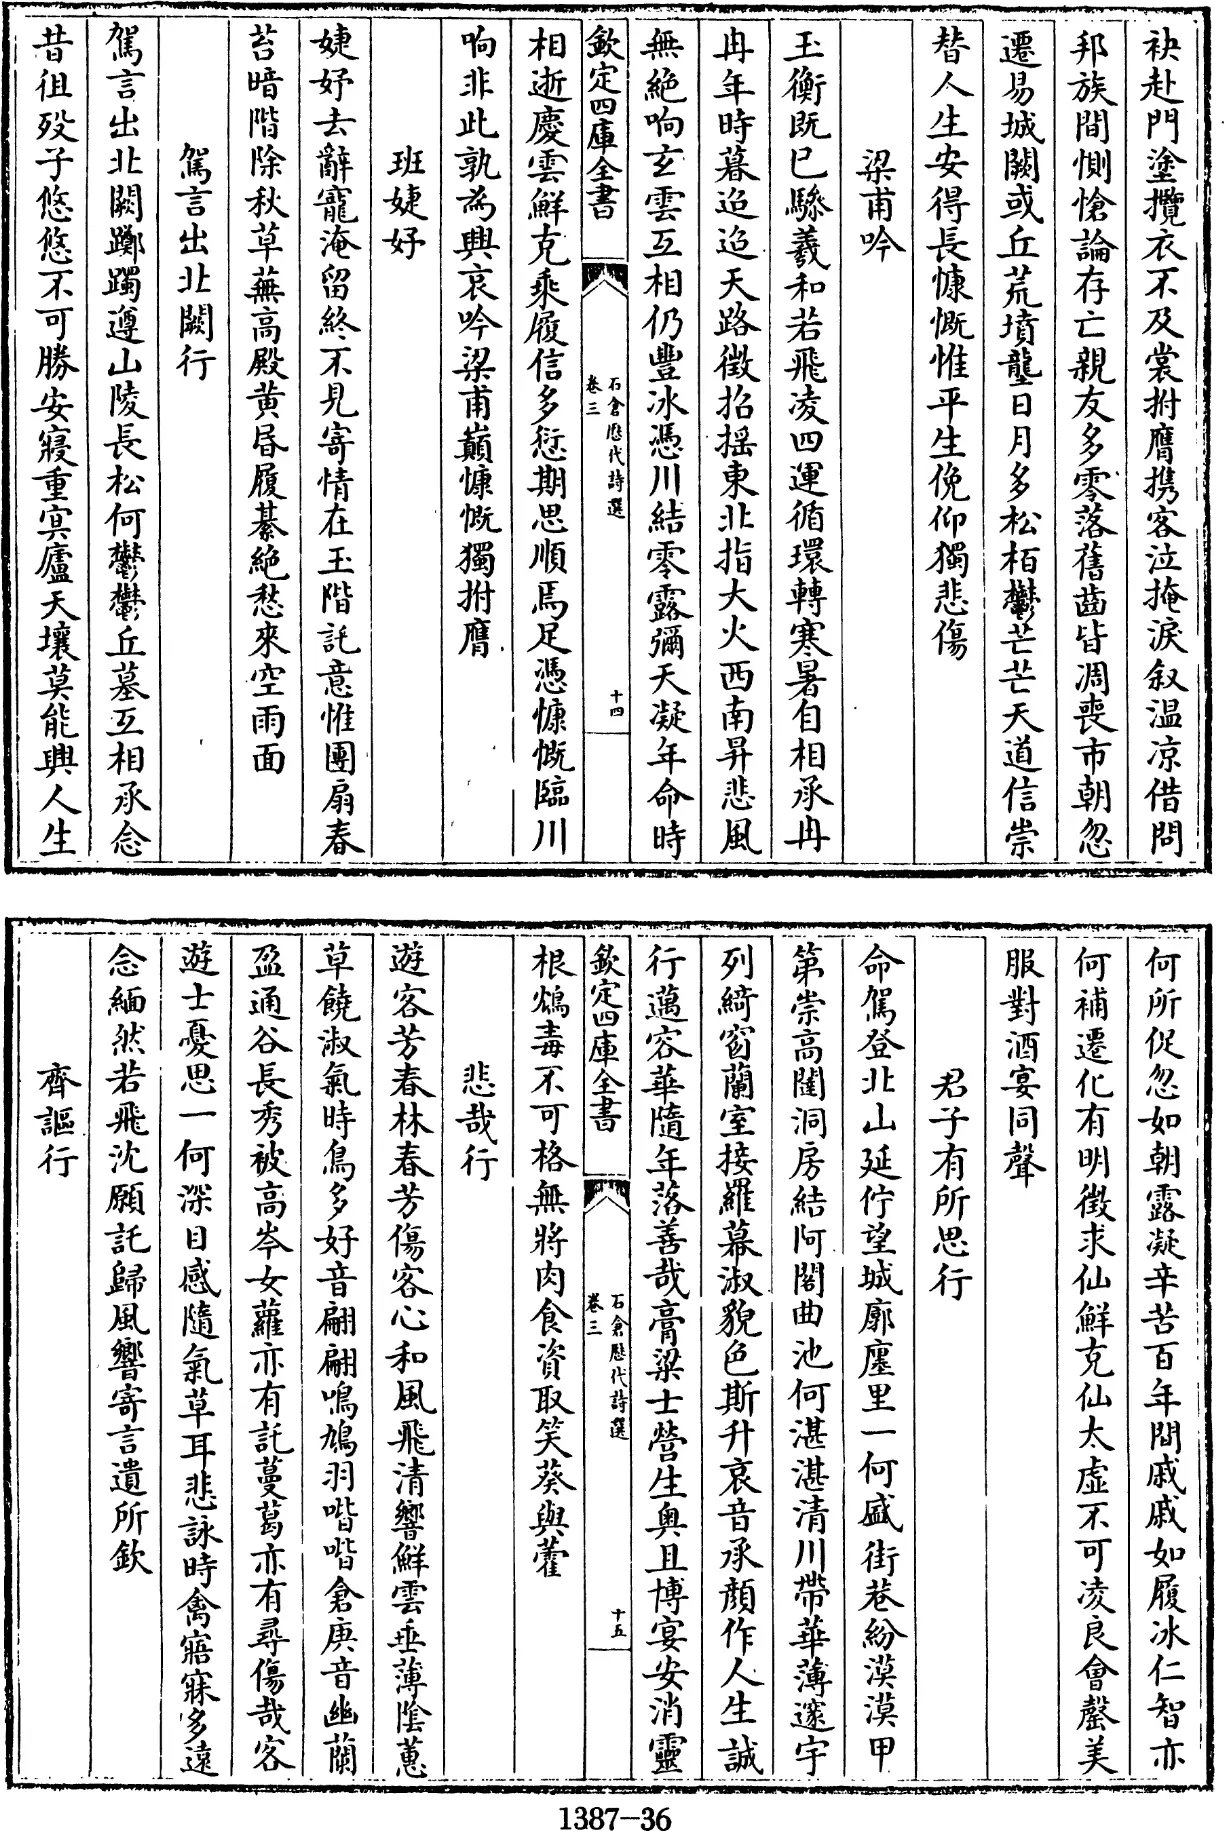 袂赴門塗攬衣不及裳拊膺携客泣掩淚叙温凉借問
邦族間惻愴論存亡親友多零落舊齒皆凋喪市朝忽
遷易城闕或丘荒墳壟日月多松栢鬱芒芒天道信崇
替人生安得長慷慨惟平生俛仰獨悲傷
梁甫吟
玉衡既已驂羲和若飛凌四運循環轉寒暑自相承冉
冉年時暮迢迢天路徵招摇東北指大火西南昇悲風
無絶响玄雲互相仍豐冰憑川結零露彌天凝年命時
欽定四庫全書
石倉歷代詩選
卷三
十四
相逝慶雲鮮克乘履信多愆期思順焉足憑慷慨臨川
响非此孰為興哀吟梁甫巔慷慨獨拊膺
班婕妤
婕妤去辭寵淹留終不見寄情在玉階託意惟團扇春
苔暗階除秋草蕪高殿黄昏履綦絶愁來空雨面
駕言出北闕行
駕言出北闕躑躅遵山陵長松何鬱鬱丘墓互相承念
昔徂殁子悠悠不可勝安寢重冥廬天壤莫能興人生
何所促忽如朝露凝辛苦百年間戚戚如履冰仁智亦
何補遷化有明徵求仙鮮克仙太虚不可凌良會罄美
服對酒宴同聲
君子有所思行
命駕登北山延佇望城廓廛里一何盛街巷紛漠漠甲
第崇高闥洞房結阿閣曲池何湛湛清川帶華薄邃宇
列綺窗蘭室接羅幕淑貌色斯升哀音承顔作人生誠
行邁容華隨年落善哉膏粱士營生奥且博宴安消靈
欽定四庫全書
石倉歷代詩選
卷三
十五
根鴆毒不可格無將肉食資取笑葵與藿
悲哉行
遊客芳春林春芳傷客心和風飛清響鮮雲垂薄陰蕙
草饒淑氣時鳥多好音翩翩鳴鳩羽喈喈倉庚音幽蘭
盈通谷長秀被高岑女蘿亦有託蔓葛亦有尋傷哉客
遊士憂思一何深目感隨氣草耳悲詠時禽寤寐多遠
念緬然若飛沈願託歸風響寄言遺所欽
齊謳行
1387-36